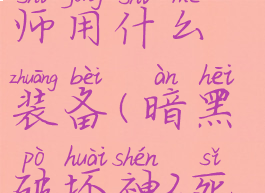 师用什么
zhuāng bèi àn hēi
装备(暗黑
pò huài shén sǐ
破坏神2死